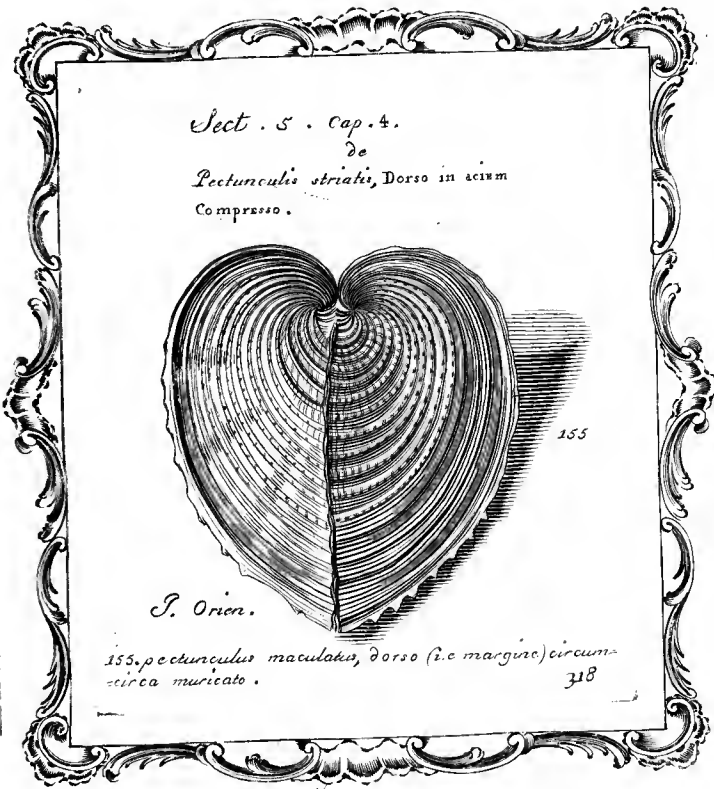 Sect . 5 . Cap . 4.
de
Pectunculis striatis, Dorso in aciem
Compresso .
155
P. Orien.
155. pectunculus maculatus, dorso (i.e margine) circum=
=circa muricato .
318